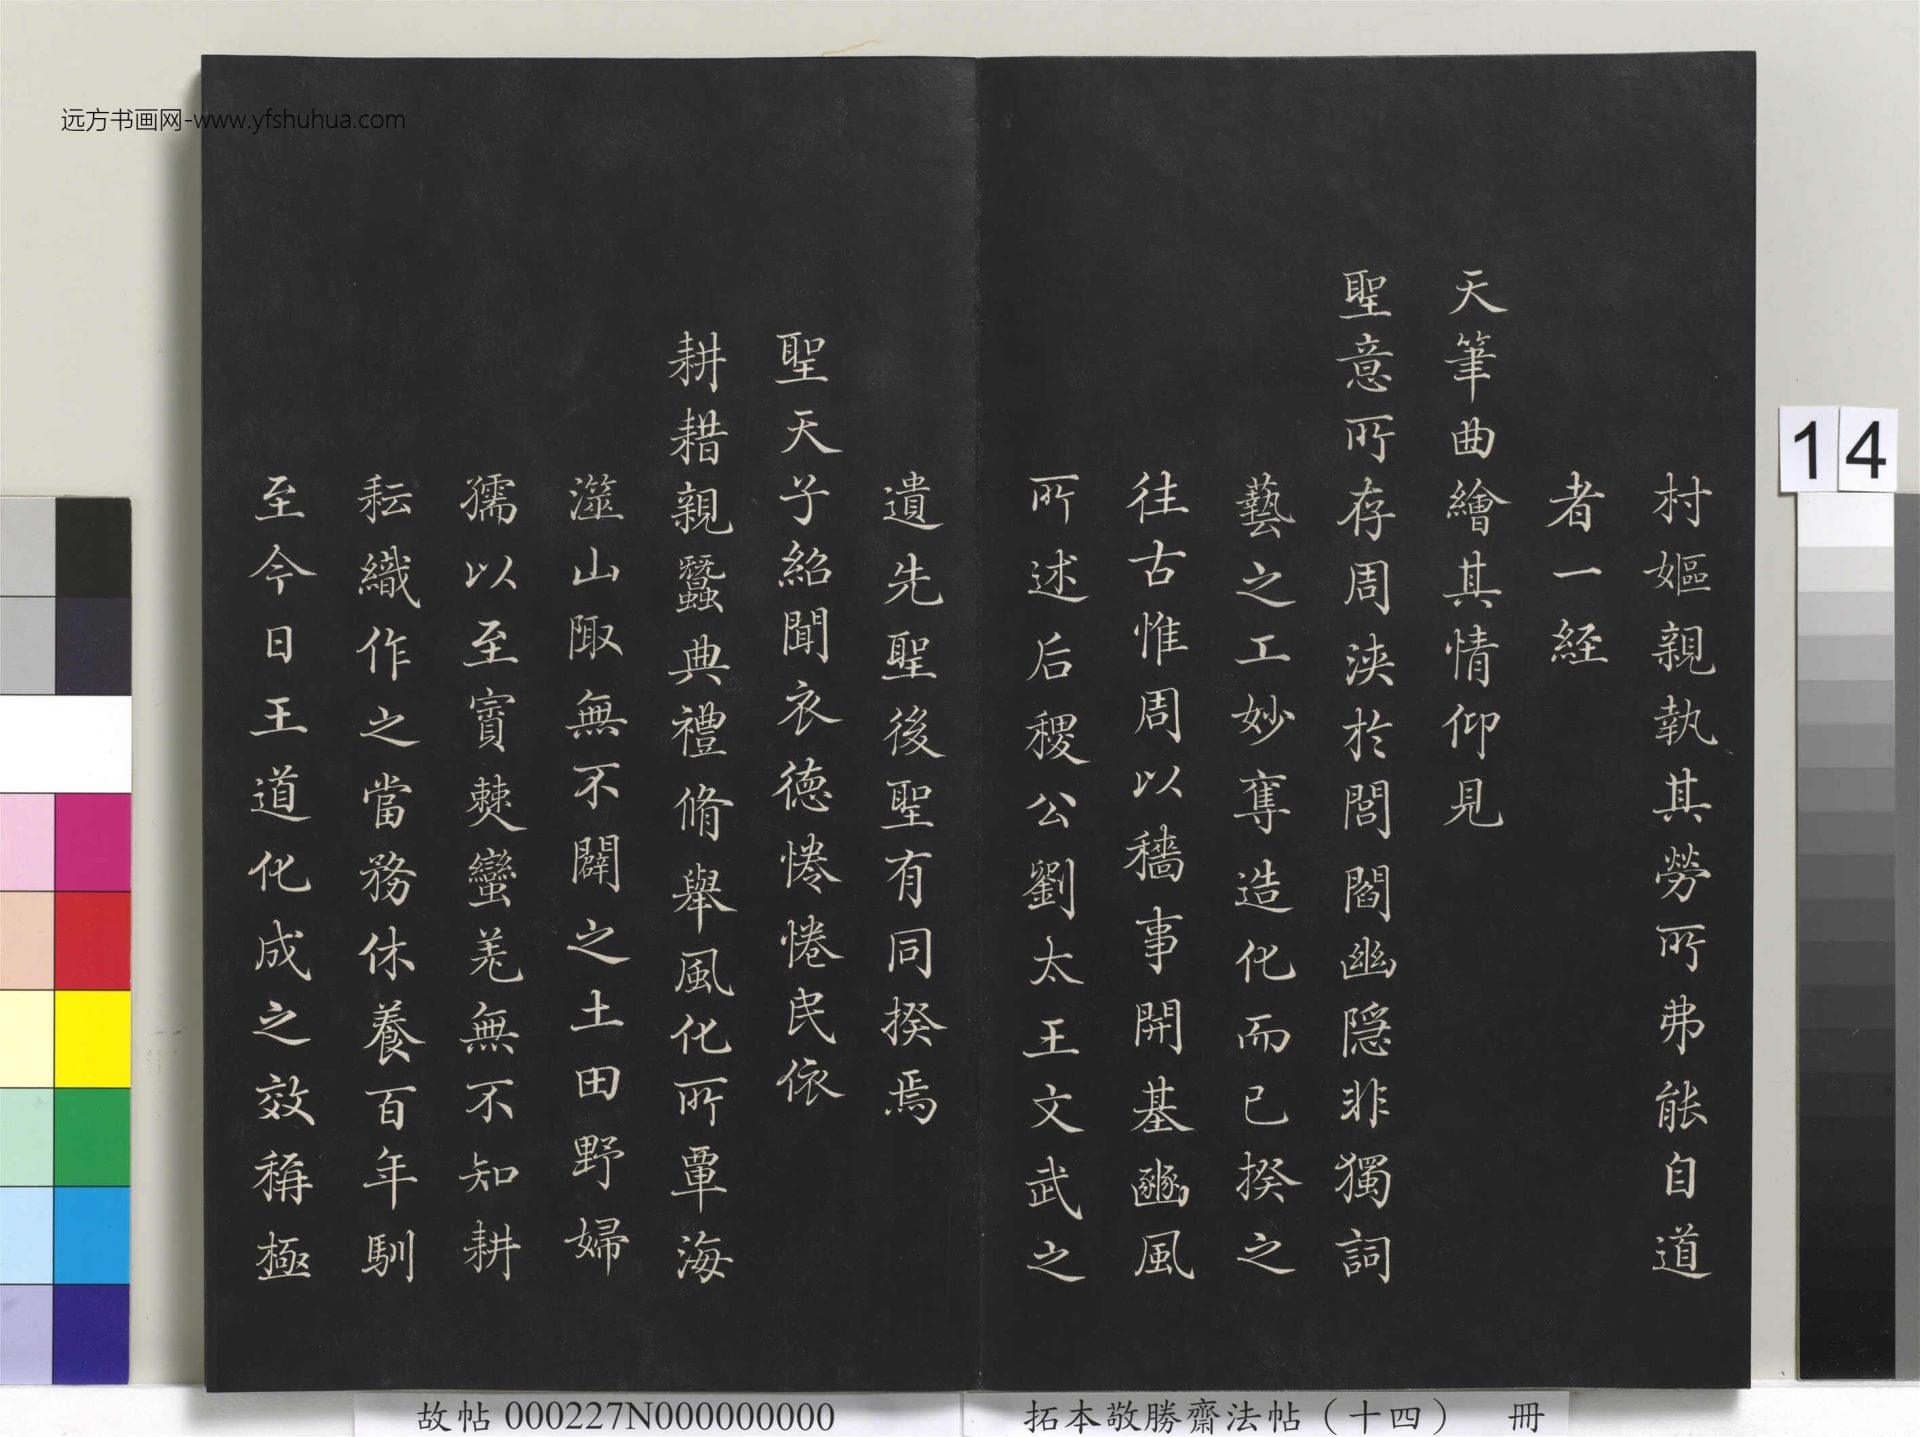 远方书画网-www.yfshuhua.com
14
村嫗親執其勞所弗能自道
者一経
天筆曲繪其情仰見
聖意所存周浹於閭閻幽隠非獨詞
藝之工妙奪造化而已揆之
往古惟周以穡事開基豳風
所述后稷公劉太王文武之
遺先聖後聖有同揆焉
聖天子紹聞衣德惓惓民依
耕耤親蠶典禮脩舉風化所覃海
澨山陬無不闢之土田野婦
孺以至賨僰蠻羌無不知耕
耘織作之當務休養百年馴
至今日王道化成之效稱極
故帖 000227N000000000
拓本敬勝齋法帖（十四） 冊